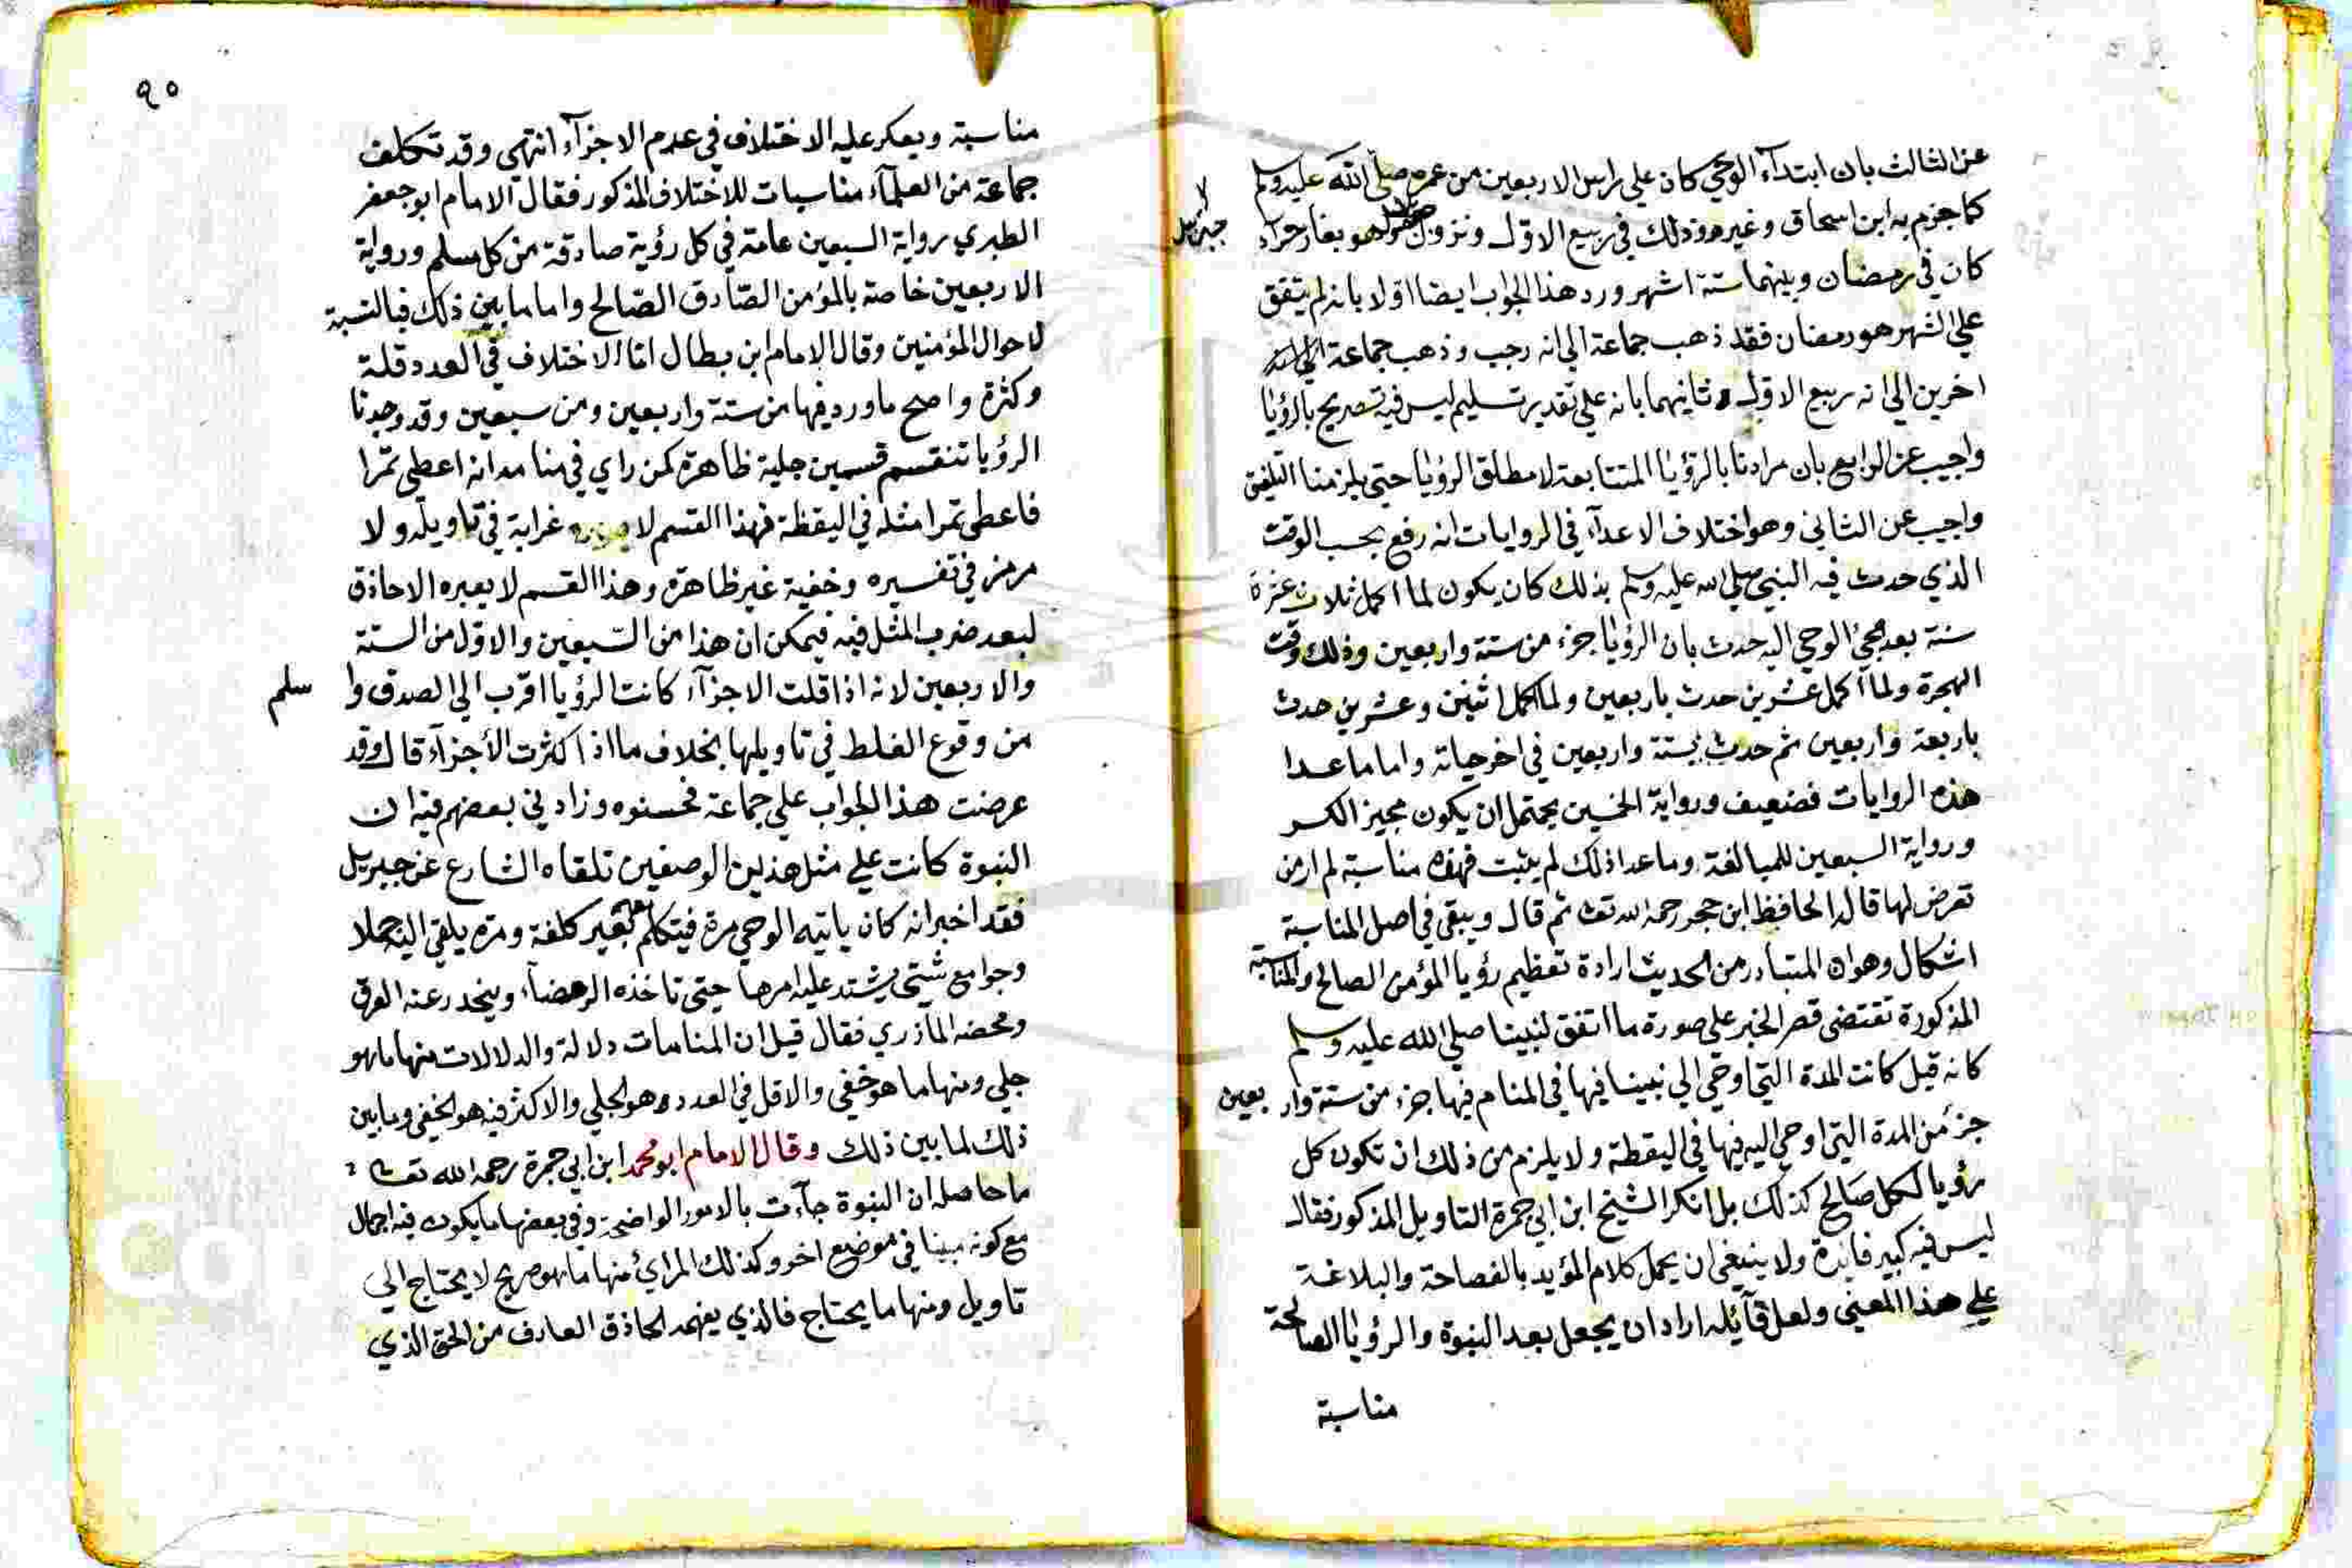 عن الثالث بان ابتدآء الوحي كان علي راس الاربعين من عمره صلي الله عليه وسلم
كما جزم به ابن اسحاق وغيره وذلك في ربيع الاول ونزول جبريل وهو بغار حراء
كان في رمضان وبينهما ستة اشهر ورد هذا الجواب ايضا اولا بانه لم يتفق
علي الشهر هو رمضان فقد ذهب جماعة الي انه رجب وذهب جماعة
اخرين الي انه ربيع الاول وثانيهما بانه علي تقدير تسليم ليس فيه تصريح بالرؤيا
واجيب عن الرابع بان مرادنا بالرؤيا المتتابعة لا مطلق الرؤيا حتي يلزمنا التلفيق
واجيب عن الثاني وهو اختلاف الاعدآء في الروايات انه رفع بحسب الوقت
الذي حدث فيه النبي صلي الله عليه وسلم بذلك كان يكون لما اكمل ثلاث عشرة
سنة بعد مجئ الوحي اليه حدث بان الرؤيا جزء من ستة واربعين وذلك وقت
الهجرة ولما اكمل عشرين حدث باربعين ولما اكمل اثنين وعشرين حدث
باربعة واربعين ثم حدث بستة واربعين في اخر حياته واما ما عدا
هذه الروايات فضعيف ورواية الخمسين يحتمل ان يكون مجيز الكسر
ورواية السبعين للمبالغة وما عدا ذلك لم يثبت فهذه مناسبة لم ار من
تعرض لها قاله الحافظ ابن حجر رحمه الله تعا ثم قال ويبقي في اصل المناسبة
اشكال وهو ان المتبادر من الحديث ارادة تعظيم رؤيا المؤمن الصالح والمناسبة
المذكورة تقتضي قصر الخبر علي صورة ما اتفق لنبينا صلي الله عليه وسلم
كانه قيل كانت المدة التي اوحي الي نبينا فيها في المنام فيها جزء من ستة واربعين
جزء من المدة التي اوحي اليه فيها في اليقظة ولا يلزم من ذلك ان تكون كل
رؤيا لكل صالح كذلك بل انكر الشيخ ابن ابي جمرة التاويل المذكور فقال
ليس فيه كبير فائدة ولا ينبغي ان يحمل كلام المؤيد بالفصاحة والبلاغة
علي هذا المعني ولعل قآئله اراد ان يجعل بعد النبوة والرؤيا الصالحة
مناسبة
٩٠
مناسبة ويعكر عليه الاختلاف في عدم الاجزآء انتهي وقد تكلف
جماعة من العلمآء مناسبات للاختلاف المذكور فقال الامام ابو جعفر
الطبري رواية السبعين عامة في كل رؤية صادقة من كل مسلم ورواية
الاربعين خاصة بالمؤمن الصادق الصالح واما ما بين ذلك فبالنسبة
لاحوال المؤمنين وقال الامام ابن بطال اما الاختلاف في العدد قلة
وكثرة واصح ما ورد فيها من ستة واربعين ومن سبعين وقد وجدنا
الرؤيا تنقسم قسمين جلية ظاهرة كمن راي في منامه انه اعطي تمرا
فاعطي تمرا مثله في اليقظة فهذا القسم لا غرابة في تاويله ولا
رمز في تفسيره وخفية غير ظاهرة وهذا القسم لا يعبره الا حاذق
لبعد ضرب المثل فيه فيمكن ان هذا من السبعين والاول من الستة
والاربعين لانه اذا قلت الاجزآء كانت الرؤيا اقرب الي الصدق واسلم
من وقوع الغلط في تاويلها بخلاف ما اذا كثرت الأجزآء قال وقد
عرضت هذا الجواب علي جماعة فحسنوه وزادني بعضهم فيه ان
النبوة كانت علي مثل هذين الوصفين تلقاه الشارع عن جبريل
فقد اخبر انه كان ياتيه الوحي مرة فيتكلم معه بغير كلفة ومرة يلقي اليه جملا
وجوامع شتي يشتد عليه امرها حتي تاخذه الرحضآء وينحدر عنه العرق
ومحضه المازري فقال قيل ان المنامات دلالة والدلالات منها ما هو
جلي ومنها ما هو خفي والاقل في العدد هو الجلي والاكثر فيه هو الخفي وما بين
ذلك لما بين ذلك وقال الامام ابو محمد ابن ابي جمرة رحمه الله تعا
ما حاصله ان النبوة جآءت بالامور الواضحة وفي بعضها ما يكون فيه اجمال
مع كونه مبينا في موضع اخر وكذلك المرائي منها ما هو صريح لا يحتاج الي
تاويل ومنها ما يحتاج فالذي يفهمه الحاذق العارف من الحق الذي